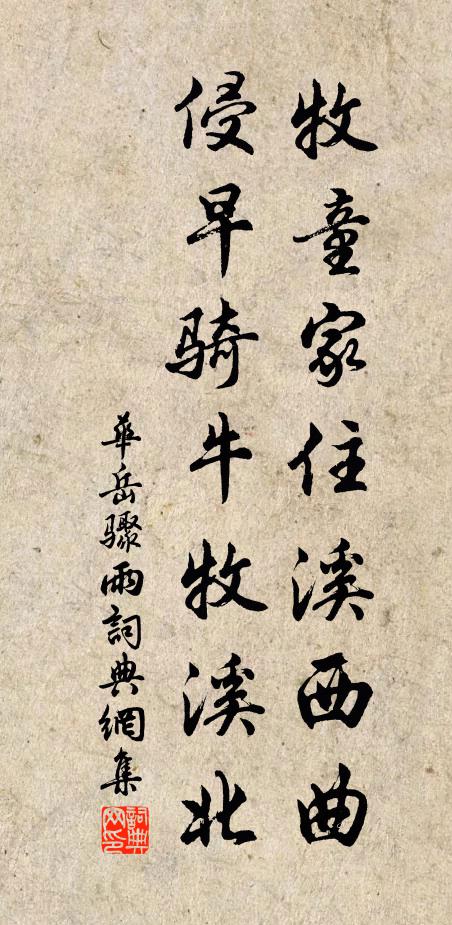 牧童家住溪西曲
侵早骑牛牧溪北
华岳骤雨詞典網集
詞典网印